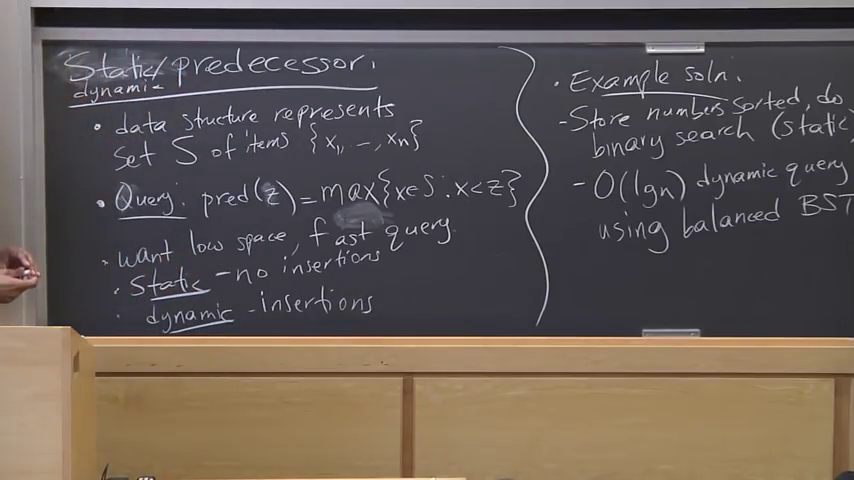 Static/predecessor.
dynamic
• data structure represents
set S of items {x₁, –, xₙ}
• Query: pred(z) = max{x∈S : x<z}
• want low space, fast query
• Static - no insertions
• dynamic - insertions
• Example soln.
- Store numbers sorted, do
binary search (static
- O(lgn) dynamic query
using balanced BST